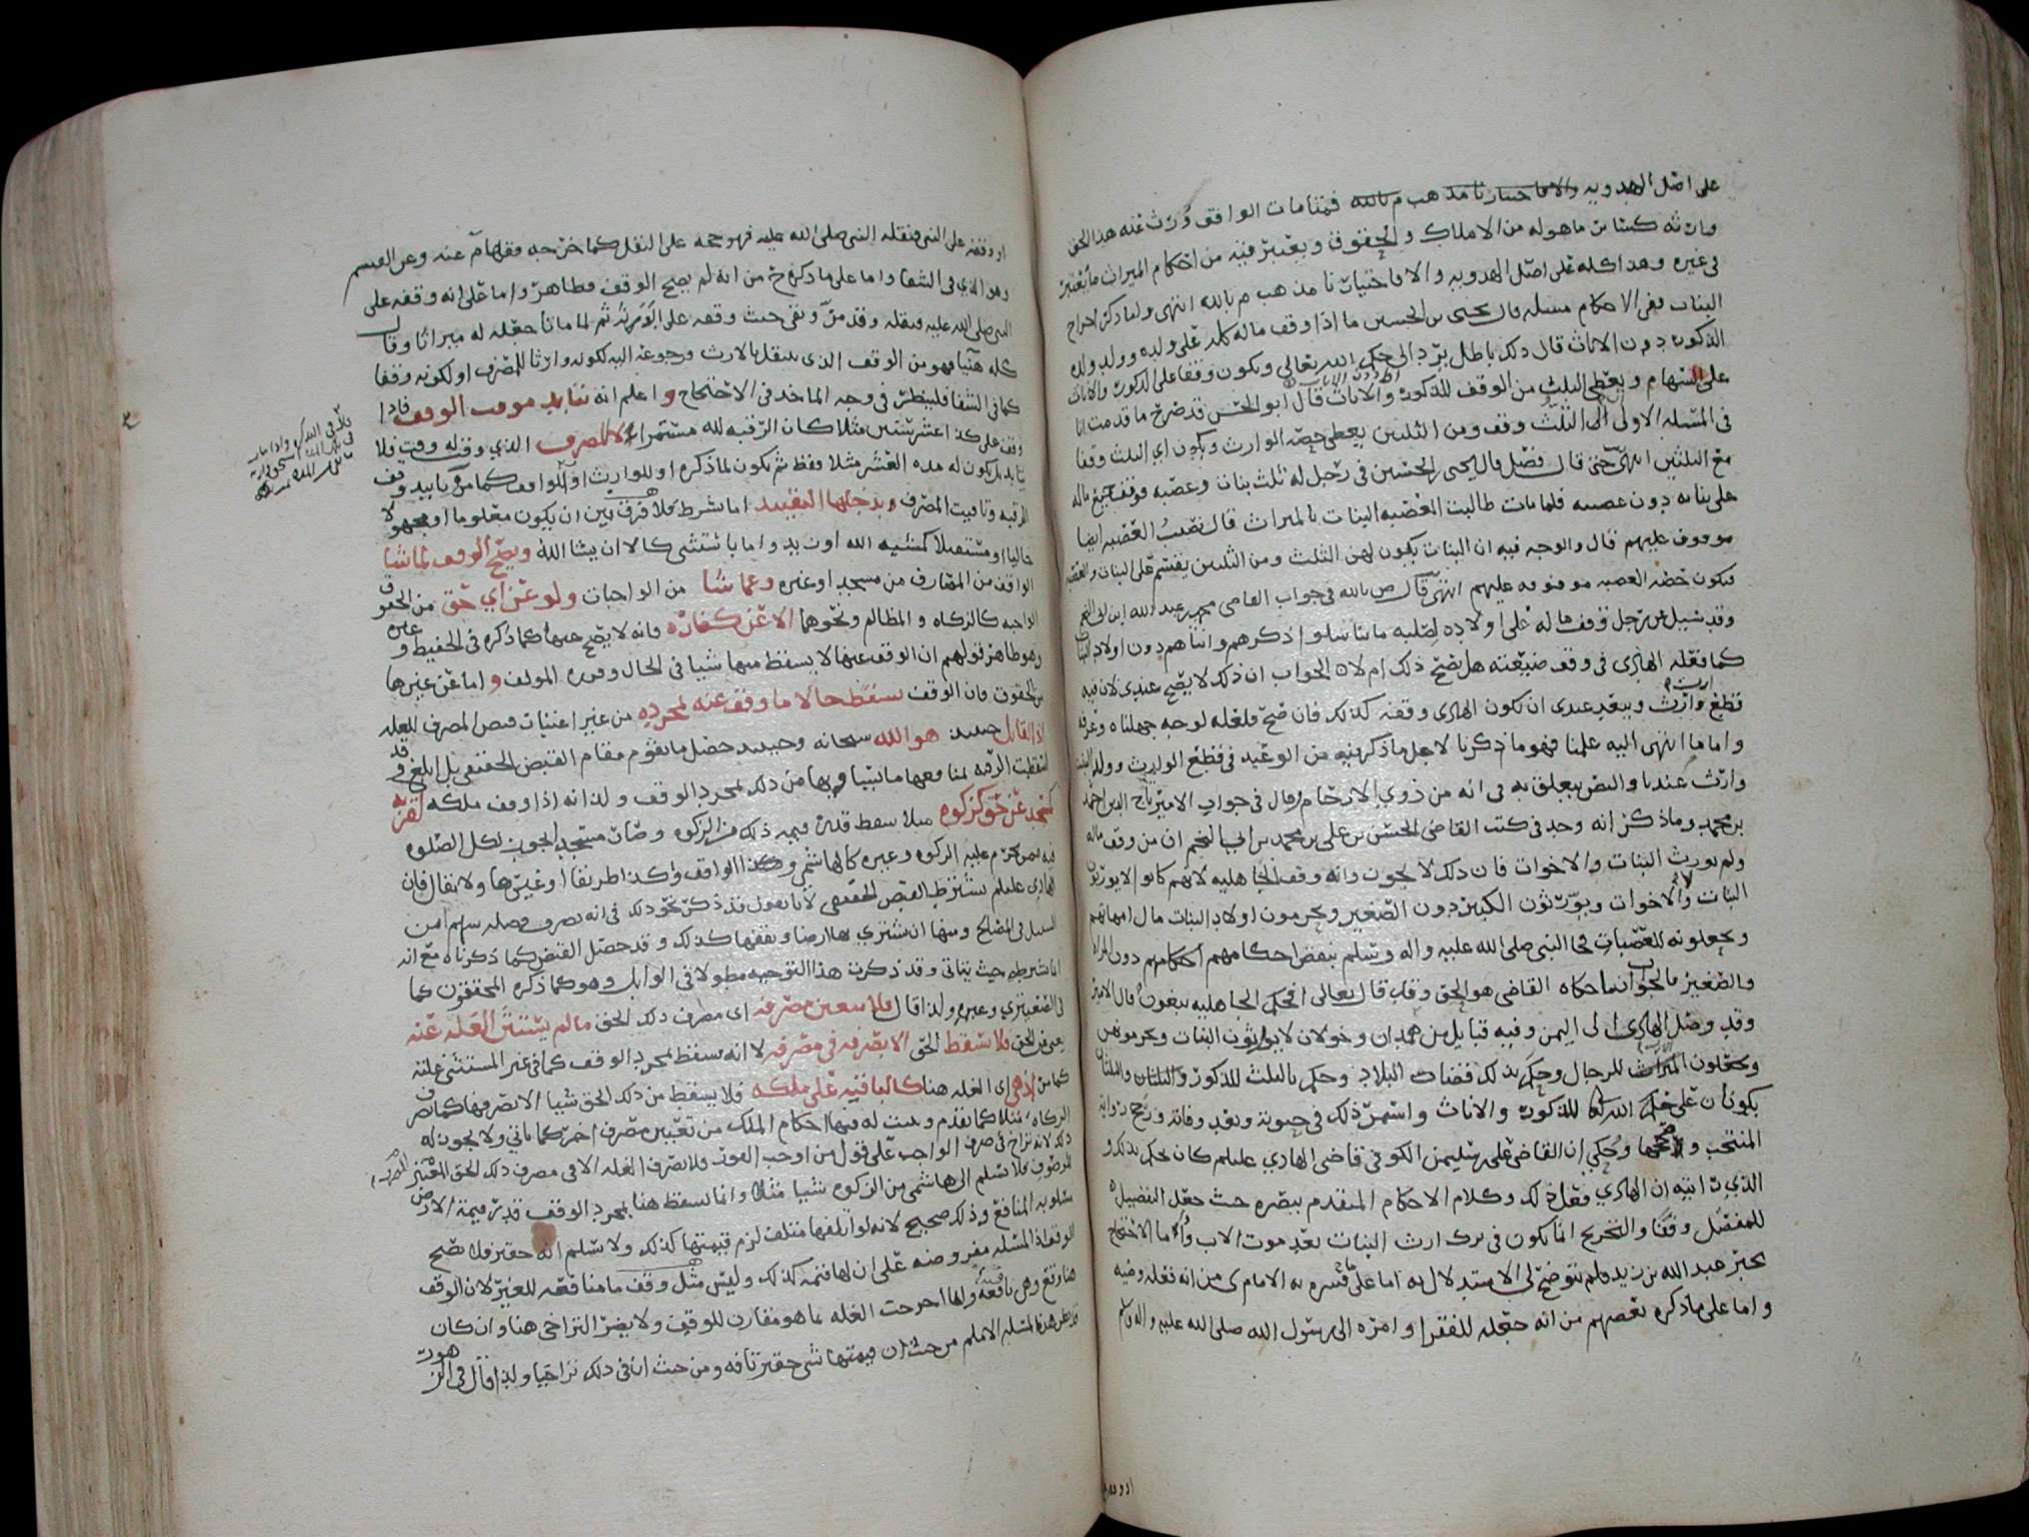 على اصل الهدويه والافاختيارنا مذهب م بالله فمتامات الواقف وُرث عنه هذا الحق
وارثه كسائر ماهوله من الاملاك والحقوق ويعتبر فيه من احكام الميراث مايُعتبر
في غيره وهذا كله على اصل الهدويه والا فاختيارنا مذهب م بالله انتهى ولما ذكر اخراج
البنات ففي الاحكام مسله قال يحيى بن الحسين ما اذا وقف ماله كله على ولده وولد ولده
الذكور دون الاناث قال ذلك باطل يرد الى حكم الله تعالى ويكون وقفا على الذكور والاناث
على السهام ويعطى الثلث من الوقف للذكور والاناث قال ابو الحسن قد ضرح ما قدمت انا
في المسله الاولى الى الثلث وقف ومن الثلثين يعطى حصه الوارث ويكون اي الثلث وقفا
مع الثلثين انتهى حتى قال فصل قال يحيى بن الحسين في رجل له ثلث بنات وعصبه فوقف جميع ماله
على بناته دون عصبته فلما مات طالبت العصبه البنات بالميراث قال نصيب العصبه ايضا
موقوف عليهم قال والوجه فيه ان البنات يكون لهن الثلث ومن الثلثين يقسم على البنات والعصبه
فيكون حصه العصبه موقوفه عليهم انتهى قال ص بالله في جواب القاضي محمد بن عبد الله ابن ابي النجم
وقد سُيل عن رجل وقف ماله على اولاده لصلبه ماتناسلوا ذكرهم وانثاهم دون اولاد البنات
كما فعله الهادي في وقف ضيعته هل يصح ذلك ام لا الجواب ان ذلك لا يصح عندي لان فيه
قطع وارث ويبعد عندي ان تكون الهادي وقفه كذلك فان صح فلعله لوجه جهلناه وعرفه
واما ما انتهى اليه علمنا فهو ما ذكرنا لاجل ما ذكر فيه من الوعيد في قطع الوارث وولد البنت
وارث عندنا والنص يتعلق به في انه من ذوي الارحام وقال في جواب الامير تاج الدين احمد
بن محمد وماذكر انه وجد في كتب القاضي الحسن بن علي بن محمد بن ابي النجم ان من وقف ماله
ولم يورث البنات والاخوات فان ذلك لا يجوز وانه وقف الجاهليه لانهم كانوا لا يورثون
البنات ولا الاخوات ويورثون الكبير دون الصغير ويحرمون اولاد البنات مال امهاتهم
ويجعلونه للعصبات فجا النبي صلى الله عليه واله وسلم بنقض احكامهم دون المراه
والصغير فالجواب انما حكاه القاضي هو الحق وقد قال تعالى افحكم الجاهليه يبغون قال الامير
وقد وصل الهادي الى اليمن وفيه قبايل من همدان وخولان لايورثون البنات ويحرمونهن
ويجعلون الميراث للرجال وحكم بذلك قضات البلاد وحكم بالثلث للذكور والثلثان والثلثان
يكونان على حكم الله للذكور والاناث واستمر ذلك في حيوته وبعد وفاته ورجح روايه
المنتخب وصححها وحُكي ان القاضي علي بن سليمن الكوفي قاضي الهادي عليلم كان يحكم بذلك و
الذي رايته ان الهادي فعل ذلك وكلام الاحكام المتقدم ينصره حيث جعل التفضيل
للمفضل وقفًا والتخريج انما يكون في ترك ارث البنات بعد موت الاب وأما الاحتجاج
بخبر عبد الله بن زيد فلم يتوضح لي الاستدلال به اما على ما فسره به الامام ي من انه فعله وصيه
واما على ماذكره بعضهم من انه جعله للفقرا وامره الى رسول الله صلى الله عليه واله وسلم
او وقفه
او وقفه على النبي فنقله النبي صلى الله عليه فهو حجه على النقل كما خرجه فقهام عنه وعن القسم
وهو الذي في الشفا واما على ماذكره ح من انه لم يصح الوقف فظاهر واما على انه وقفه على
النبي صلى الله عليه ونقله وقد مر ونفى حيث وقفه على ابويه ثم لما ماتا جعله له ميراثا وقال
كله هنيا فهو من الوقف الذي ينتقل بالارث ورجوعه اليه لكونه وارثا للمصرف او لكونه وقفا
كما في الشفا فلينظر في وجه الماخذ في الاحتجاج واعلم انه يتابد موقت الوقف فاذا
وقف على كذا عشر سنين مثلا كان الرقبه لله مستمرا الا المصرف الذي وقف له وقت فلا
يتابد بل يكون له هذه العشر مثلا فقط ثم يكون لما ذكره او للوارث او للواقف كما مر تابيد وقف
الرقبه وتاقيت المصرف ويدخلها التقييد اما بشرط فلا فرق بين ان يكون معلوما او مجهولا
حاليا او مستقبلا كمشيه الله او زيد واما باستثنى كالا ان يشا الله ويصح الوقف لما شا
الواقف من المصارف من مسجد او غيره وعما شا من الواجبات ولو عن اي حق من الحقوق
الواجبه كالزكاه والمظالم ونحوهما الا عن كفاره فانه لا يصح عنها كما ذكره في الحفيظ وغيره
وهو ظاهر قولهم ان الوقف عنها لا يسقط منها شيا في الحال وقرره المولف واما عن غيرها
من الحقوق فان الوقف سقط حالا ما وقف عنه لمجرده من غير اعتبارت قبض المصرف للعله
اذ القابل حينيذ هو الله سبحانه وحينيذ حصل مايقوم مقام القبض الحقيقي بل ابلغ وقد
اسقطت الرقبه لمنافعها مانيتها وبها من ذلك لمجرد الوقف ولذا انه اذا وقف ملكه لغرته
كمسجد عن حق كزكوه مثلا سقط قدر قيمه ذلك من الزكوه وصار مسجد يجوز لكل الصلوه
فيه ممن تحرم عليه الزكوه وغيره كالهاشمي وكذا الواقف وكذا طريقا او غيرها ولا يقال فان
الهادي عليلم يشترط القبض الحقيقي لانا نقول قد ذكر نحو ذلك في انه يصرف فضله سهم امن
السبيل في المصالح ومنها ان يشتري بها ارضا ويقفها كذلك وقد حصل القبض كما ذكرناه مع انه
انما شرطه حيث يتاتى وقد ذكرت هذا التوجيه مطولا في الوابل وهو كما ذكره المحققون كما
في الصعيتري وغيره ولذا قال فلا يتعين مصرفه اي مصرف ذلك الحق مالم يستثن الغله عنه
يعني عن الحق فلا تسقط الحق الا بصرفه في مصرفه لا انه يسقط بمجرد الوقف كما في غير المستثنى غلته
كما مر اذ هي اي الغله هنا كالباقيه على ملكه فلا يسقط من ذلك الحق شيا الا بصرفها كما في صرف
الزكاه مثلا كما تقدم ويثبت له فيها احكام الملك من تعيين مصرف اخر كما ياتي ولا يجوز له
ذلك لانه تراخ في صرف الواجب على قول من اوجب الفور فلا تصرف الغله الا في مصرف ذلك الحق المعين
للموقوف فلا تسلم الى هاشمي من الزكوه شيا مثلا وانما يسقط هنا بمجرد الوقف قدر قيمة الارض
مسلوبه المنافع وذلك صحيح لانه لو اتلفها متلف لزم قيمتها كذلك ولا نسلم انه حقير فلا يصح
الوقف اذ المسله مفروضه على ان لها قيمه كذلك وليس مثل وقف ما منافعه للغير لان الوقف
هنا وقع وهي نافعه ولها اخرجت الغله بما هو مقارن للوقف ولا يضر التراخي هنا وان كان
قد نظر هذه المسله الامام من حيث ان قيمتها شي حقير تافه ومن حيث ان في ذلك تراخيا ولذا قال في الزهور